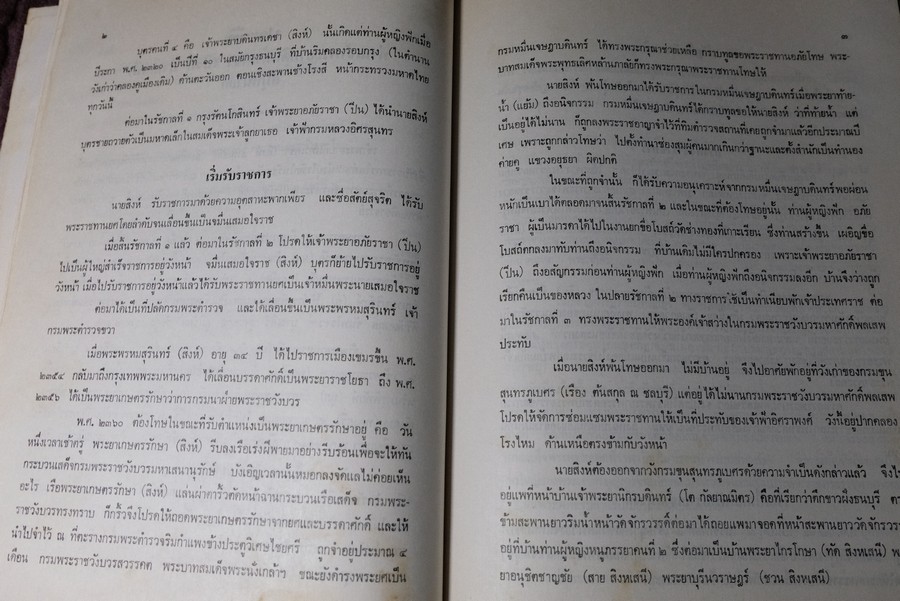 ๒
บุตรคนที่ ๔ คือ เจ้าพระยาบดินทรเดชา (สิงห์) นั้นเกิดแต่ท่านผู้หญิงฟักเมื่อ
ปีระกา พ.ศ. ๒๓๒๐ เป็นปีที่ ๑๐ ในสมัยกรุงธนบุรี ที่บ้านริมคลองรอบกรุง (ในตำนาน
วังเก่าว่าคลองคูเมืองเดิม) ด้านตะวันออก ตอนเชิงสะพานช้างโรงสี หน้ากระทรวงมหาดไทย
ทุกวันนี้
ต่อมาในรัชกาลที่ ๑ กรุงรัตนโกสินทร์ เจ้าพระยาอภัยราชา (ปิ่น) ได้นำนายสิงห์
บุตรชายถวายตัวเป็นมหาดเล็กในสมเด็จพระเจ้าลูกยาเธอ เจ้าฟ้ากรมหลวงอิศรสุนทร
เริ่มรับราชการ
นายสิงห์ รับราชการมาด้วยความอุตสาหะพากเพียร และซื่อสัตย์สุจริต ได้รับ
พระราชทานยศโดยลำดับจนเลื่อนขึ้นเป็นจมื่นเสมอใจราช
เมื่อสิ้นรัชกาลที่ ๑ แล้ว ต่อมาในรัชกาลที่ ๒ โปรดให้เจ้าพระยาอภัยราชา (ปิ่น)
ไปเป็นผู้ใหญ่สำเร็จราชการอยู่วังหน้า จมื่นเสมอใจราช (สิงห์) บุตรก็ย้ายไปรับราชการอยู่
วังหน้า เมื่อไปรับราชการอยู่วังหน้าแล้วได้รับพระราชทานยศเป็นเจ้าหมื่นพระนายเสมอใจราช
ต่อมาได้เป็นที่ปลัดกรมพระตำรวจ และได้เลื่อนขึ้นเป็นพระพรหมสุรินทร์ เจ้า
กรมพระตำรวจขวา
เมื่อพระพรหมสุรินทร์ (สิงห์) อายุ ๓๔ ปี ได้ไปราชการเมืองเขมรขึ้น พ.ศ.
๒๓๕๔ กลับมาถึงกรุงเทพพระมหานคร ได้เลื่อนบรรดาศักดิ์เป็นพระยาราชโยธา ถึง พ.ศ.
๒๓๕๖ ได้เป็นพระยาเกษตรรักษาว่าการกรมนาฝ่ายพระราชวังบวร
พ.ศ. ๒๓๖๐ ต้องโทษในขณะที่รับตำแหน่งเป็นพระยาเกษตรรักษาอยู่ คือ วัน
หนึ่งเวลาเช้าตรู่ พระยาเกษตรรักษา (สิงห์) รีบลงเรือเร่งฝีพายมาอย่างรีบร้อนเพื่อจะให้ทัน
กระบวนเสด็จกรมพระราชวังบวรมหาเสนานุรักษ์ บังเอิญเวลานั้นหมอกลงจัดแลไม่ค่อยเห็น
อะไร เรือพระยาเกษตรรักษา (สิงห์) แล่นผ่าการิ้วตัดหน้าฉานกระบวนเรือเสด็จ กรมพระ-
ราชวังบวรทรงทราบ ก็กริ้วจึงโปรดให้ถอดพระยาเกษตรรักษาจากยศและบรรดาศักดิ์ และให้
นำไปจำไว้ ณ ที่ตะรางกรมพระตำรวจริมกำแพงข้างประตูวิเศษไชยศรี ถูกจำอยู่ประมาณ ๔
เดือน กรมพระราชวังบวรสวรรคต พระบาทสมเด็จพระนั่งเกล้าฯ ขณะยังดำรงพระยศเป็น
๓
กรมหมื่นเจษฎาบดินทร์ ได้ทรงพระกรุณาช่วยเหลือ กราบทูลขอพระราชทานอภัยโทษ พระ-
บาทสมเด็จพระพุทธเลิศหล้านภาลัยก็ทรงพระกรุณาพระราชทานโทษให้
นายสิงห์ พ้นโทษออกมาได้รับราชการในกรมหมื่นเจษฎาบดินทร์เมื่อพระยาท้าย-
น้ำ (แย้ม) ถึงอนิจกรรม กรมหมื่นเจษฎาบดินทร์ได้กราบทูลขอให้นายสิงห์ ว่าที่ท้ายน้ำ แต่
เป็นอยู่ได้ไม่นาน ก็ถูกลงพระราชอาญาจำไว้ที่ทิมตำรวจสถานที่เคยถูกจำมาแล้วอีกประมาณปี
เศษ เพราะถูกกล่าวโทษว่า ไปตั้งทำนาซ่องสุมผู้คนมากเกินกว่าฐานะและตั้งสำนักเป็นทำนอง
ค่ายคู แขวงอยุธยา ผิดปกติ
ในขณะที่ถูกจำนั้น ก็ได้รับความอนุเคราะห์จากกรมหมื่นเจษฎาบดินทร์พอผ่อน
หนักเป็นเบาได้ตลอดมาจนสิ้นรัชกาลที่ ๒ และในขณะที่ต้องโทษอยู่นั้น ท่านผู้หญิงฟัก อภัย
ราชา ผู้เป็นมารดาได้ไปในงานยกช่อโบสถ์วัดช่างทองที่เกาะเรียน ซึ่งท่านสร้างขึ้น เผอิญช่อ
โบสถ์ตกลงมาทับท่านถึงอนิจกรรม ที่บ้านเดิมไม่มีใครปกครอง เพราะเจ้าพระยาอภัยราชา
(ปิ่น) ถึงอสัญกรรมก่อนท่านผู้หญิงฟัก เมื่อท่านผู้หญิงฟักถึงอนิจกรรมลงอีก บ้านจึงว่างถูก
เรียกคืนเป็นของหลวง ในปลายรัชกาลที่ ๒ ทางราชการใช้เป็นทำเนียบพักเจ้าประเทศราช ต่อ
มาในรัชกาลที่ ๓ ทรงพระราชทานให้พระองค์เจ้าสว่างในกรมพระราชวังบวรมหาศักดิ์พลเสพ
ประทับ
เมื่อนายสิงห์พ้นโทษออกมา ไม่มีบ้านอยู่ จึงไปอาศัยพักอยู่ที่วังเก่าของกรมขุน
สุนทรภูเบศร์ (เรือง ต้นสกุล ณ ชลบุรี) แต่อยู่ได้ไม่นานกรมพระราชวังบวรมหาศักดิ์พลเสพ
โปรดให้จัดการซ่อมแซมพระราชทานให้เป็นที่ประทับของเจ้าฟ้าอิศราพงศ์ วังนี้อยู่ปากคลอง
โรงไหม ด้านเหนือตรงข้ามกับวังหน้า
นายสิงห์ต้องออกจากวังกรมขุนสุนทรภูเบศร์ด้วยความจำเป็นดังกล่าวแล้ว จึงไ
อยู่แพที่หน้าบ้านเจ้าพระยานิกรบดินทร์ (โต กัลยาณมิตร) คือที่เรียกว่าตึกขาวฝั่งธนบุรี ตร
ข้ามสะพานยาวริมน้ำหน้าวัดจักรวรรดิ์ต่อมาได้ถอยแพมาจอดที่หน้าสะพานยาววัดจักรวรร
อยู่ที่บ้านท่านผู้หญิงหนูภรรยาคนที่ ๒ ซึ่งต่อมาเป็นบ้านพระยาไกรโกษา (ทัด สิงหเสนี) พร
ยาอนุชิตชาญชัย (สาย สิงหเสนี) พระยาบุรีนวราษฎร์ (ชวน สิงหเสนี)